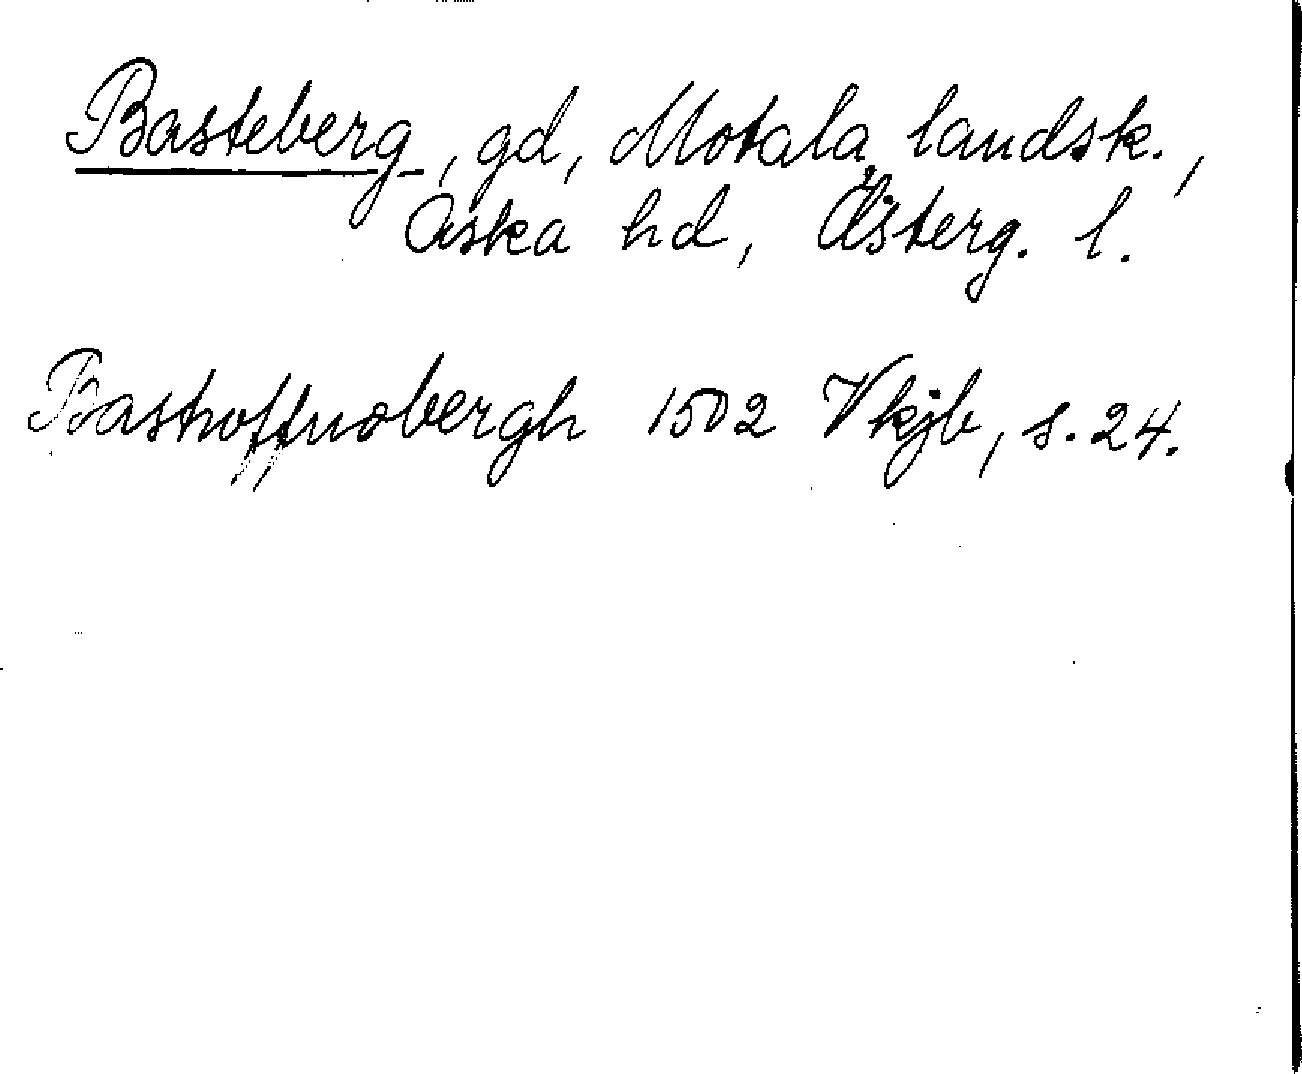 Basteberg, gd, Motala landsk.,
Aska hd, Österg. l.
Bastwffwobergh 1502 Vkjb, s. 24.